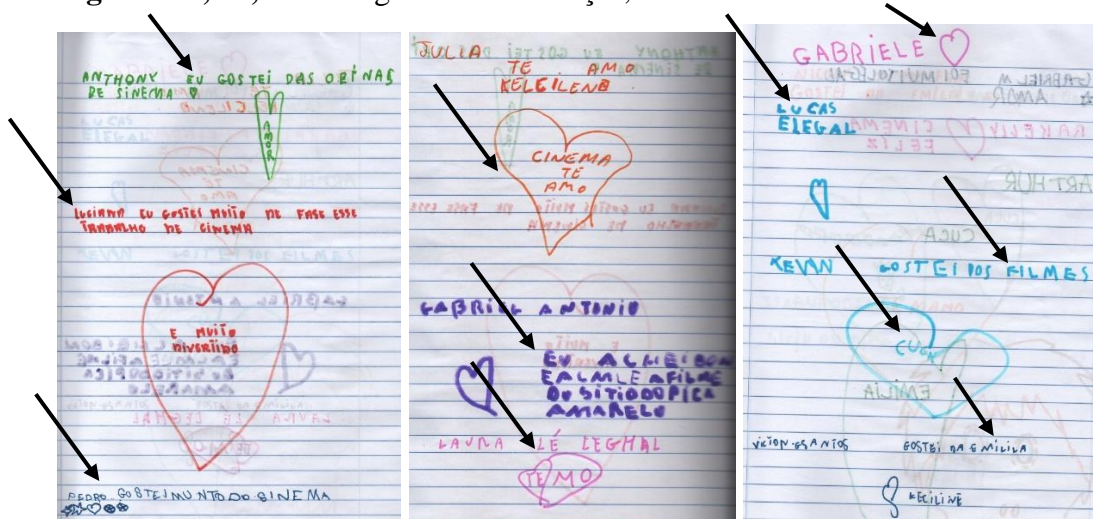 ANTHONY EU GOSTEI DAS OFINAS
DE SINEMA
AMOR
LUCIANA EU GOSTEI MUITO DE FASE ESSE
TRABALHO DE CINEMA
E MUITO
DIVERTIDO
PEDRO GOSTEI MUNTO DO SINEMA
JULIA
TE AMO
KELCILENB
CINEMA
TE
AMO
GABRIEL ANTONIO
EU ACHEI BOM
DO SITIO DO PICA
AMARELO
LAURA LÉ LEGHAL
TE MO
GABRIELE
LUCAS
ELEGAL
KEVAN GOSTEI DOS FILMES
CUCA
GOSTEI DA EMILILA
KECILINE